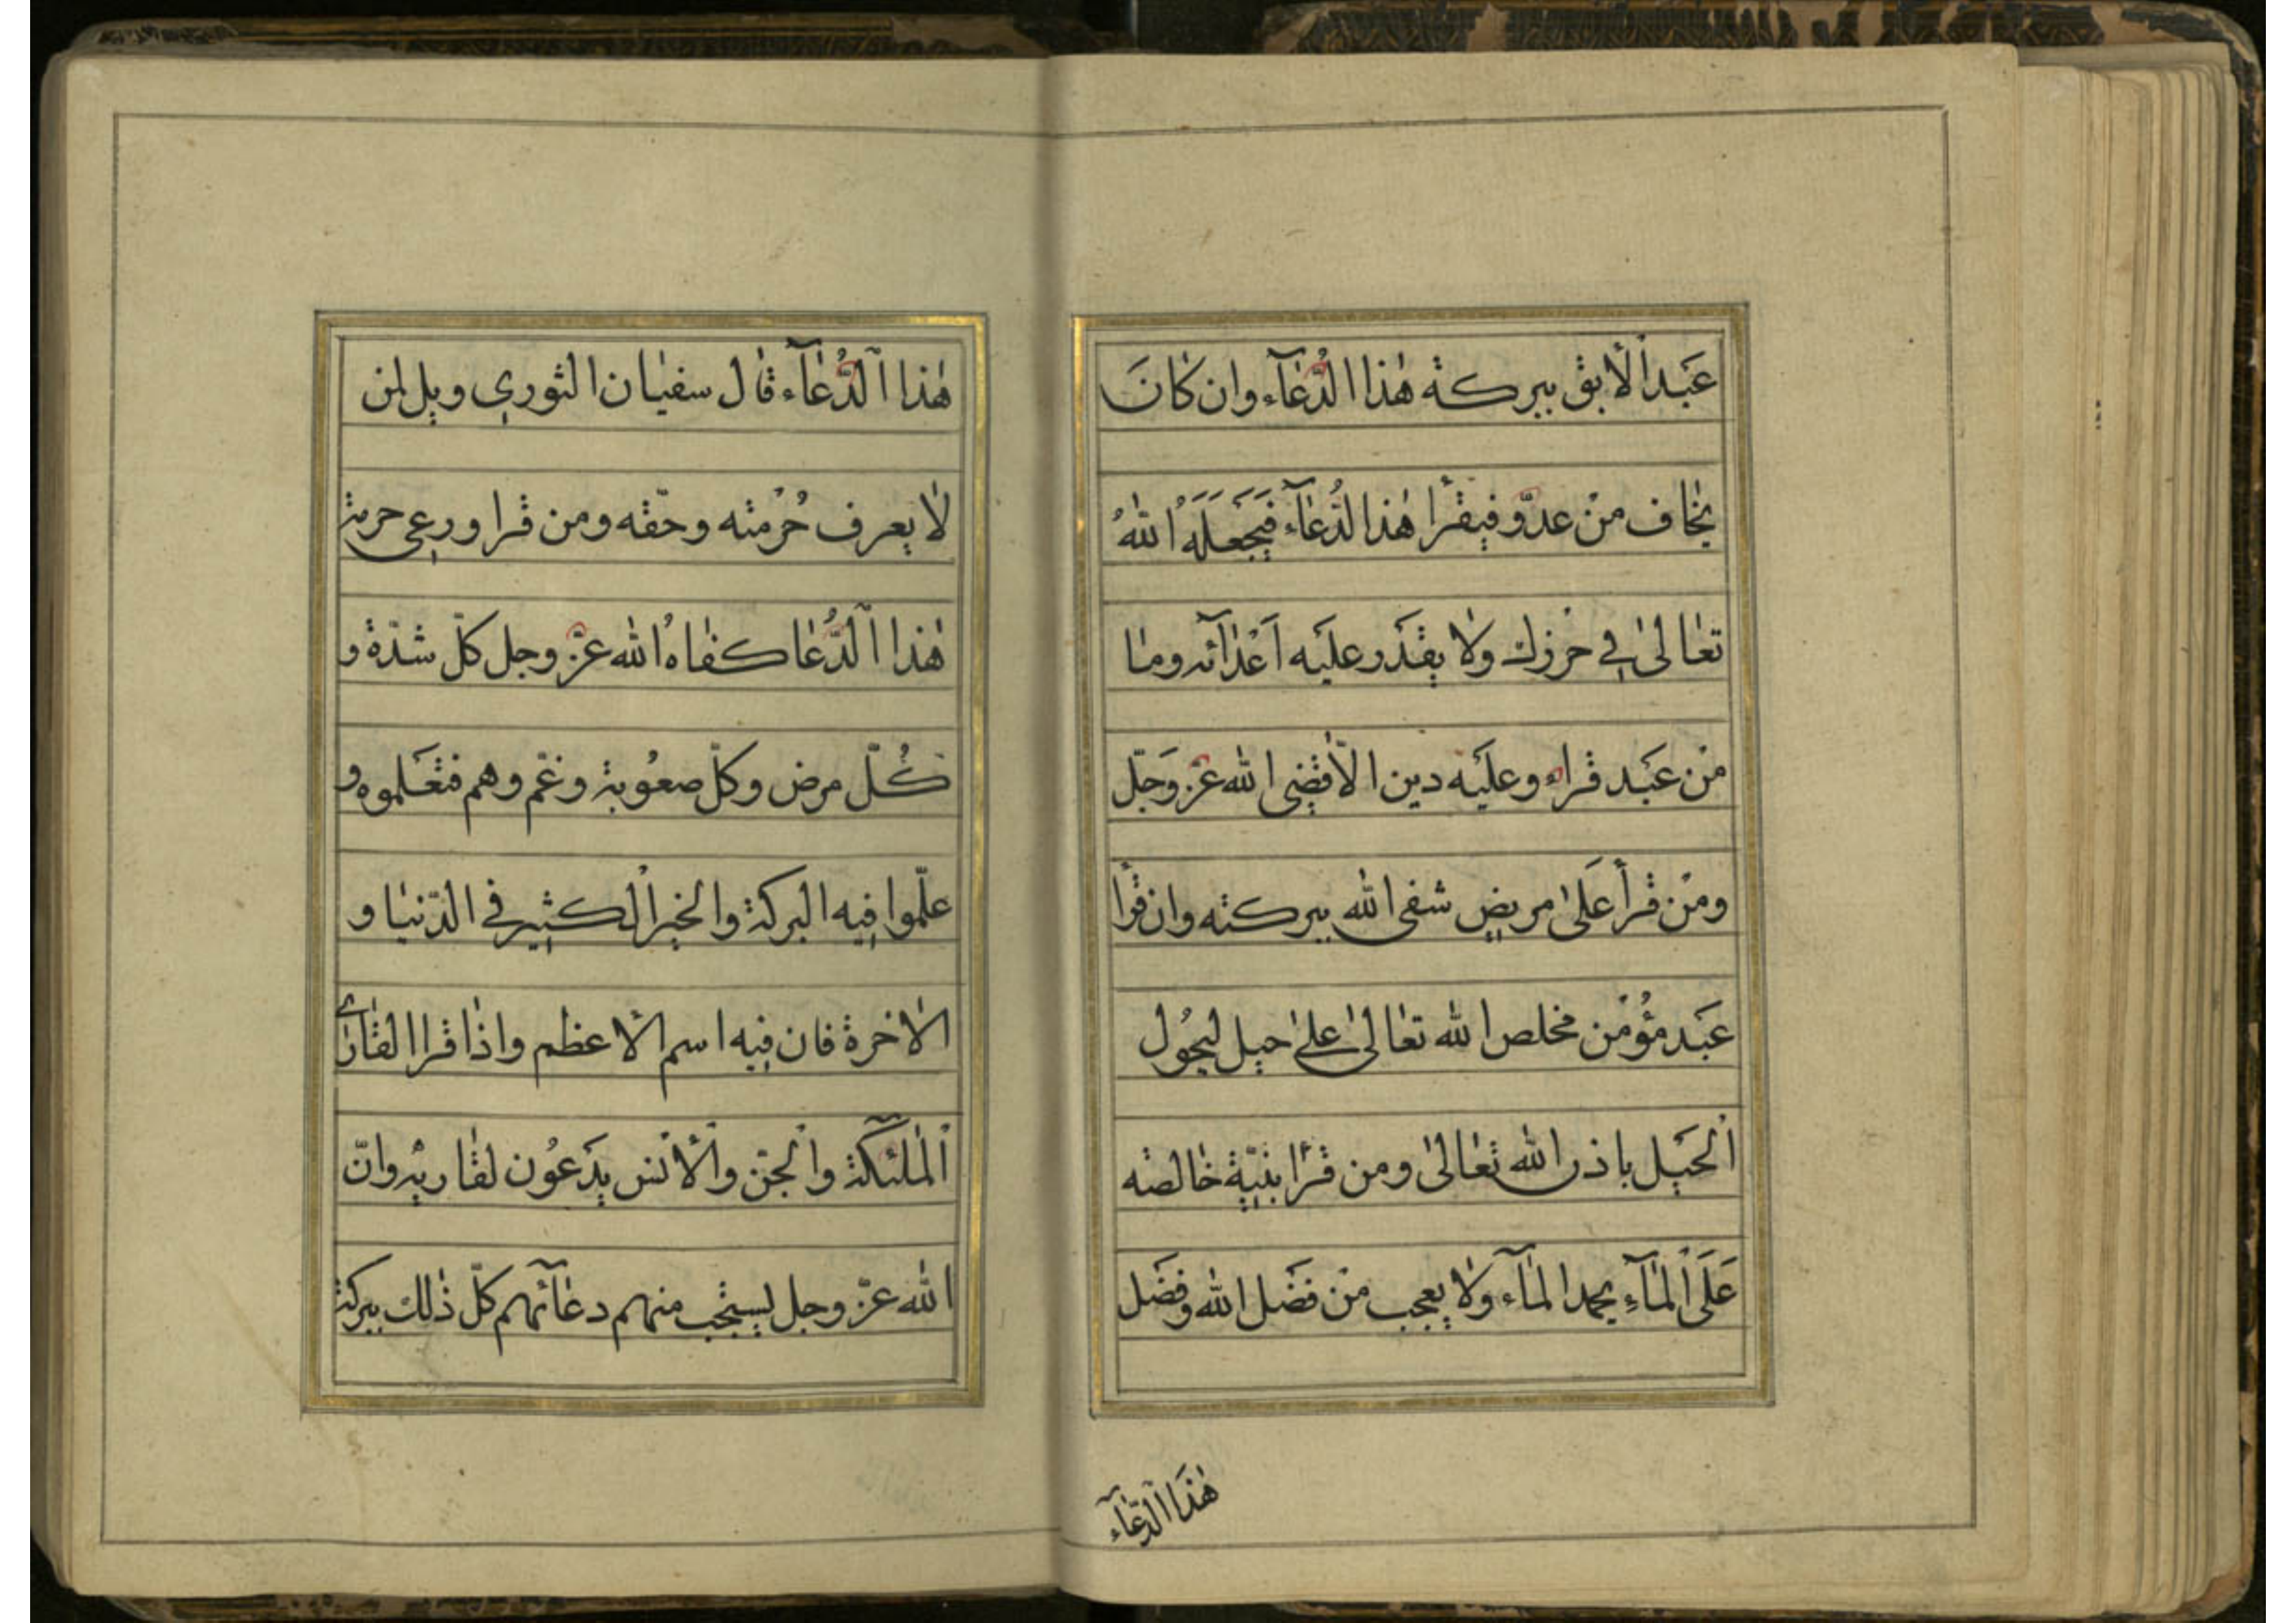 عَبد الْاٰبق ببركة هٰذا الدُّعَآء وان كٰانَ
يخٰاف منْ عدوّ فيقرأ هٰذا الدُّعٰآء فَيَجَعَلَهُ اللهُ
تعٰالىٰ فى حرْزك ولا يقدَر عليَه اَعْدٰآئه ومٰا
منْ عبَد قراء وعليَه دين الّا قضٖى الله عزّ وَجَلّ
ومنْ قرأ عَلىٰ مريض شفى الله ببركته وان قرأ
عبَد مؤُمْن مخلص الله تعٰالىٰ علىٰ حبل ليحُول
الْحبَل باذن الله تعٰالىٰ ومن قرأ بنيّة خٰالصة
عَلَى الْمٰآءِ يجمد المٰآء ولا يعجب منْ فضَل الله وفضَل
هٰذَا الدّعٰآء
هٰذا الدُّعٰآء قال سفيٰان الثورى ويل لمن
لا يعرف حُرْمته وحقّه ومن قرا ورعى حرمة
هٰذا الدُّعٰا كفاهُ الله عزّ وجل كلّ شدّة و
كُلّ مرض وكلّ صعُوبة وغمّ وهم فتعَلموه و
علّموا فيه البركة والخير الكثير فى الدّنيٰا و
الاخرة فان فيه اسم الاعظم واذٰا قرا القٰارئ
الْمٰلئكة والْجنّ والْأنس يدَعوُن لقٰاريه وانّ
الله عزّ وجل يستجب منهم دعٰآئهم كلّ ذٰلك ببركة